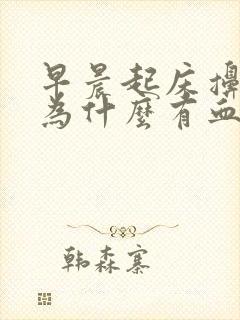 早晨起床
為什麼有血
韩森寨